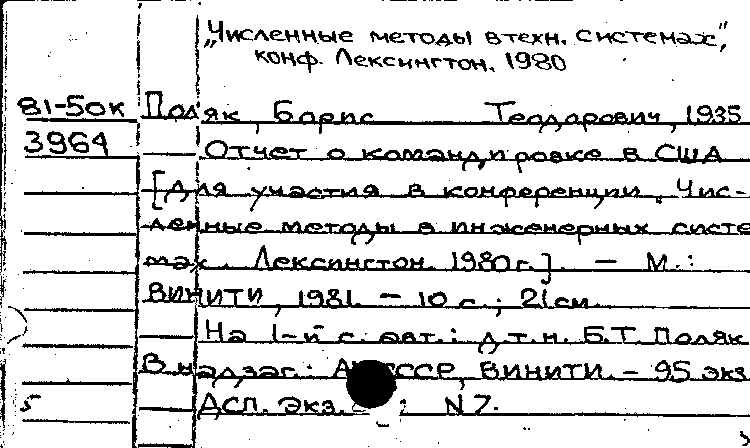 „Численные методы в техн. системах",
конф. Лексингтон, 1980
81-50к Поляк, Борис Теодорович, 1935
3964 Отчет о командировке в США
[для участия в конференции. Чис-
ленные методы в инженерных систе
мах. Лексингтон. 1980г.]. — М.:
ВИНИТИ, 1981. - 10 с.; 21см.
На 1-й с. авт.: д.т.н. Б.Т. Поляк
В надзаг.: СССР, ВИНИТИ. - 95 экз
5 ДСП. Экз. : N 7.